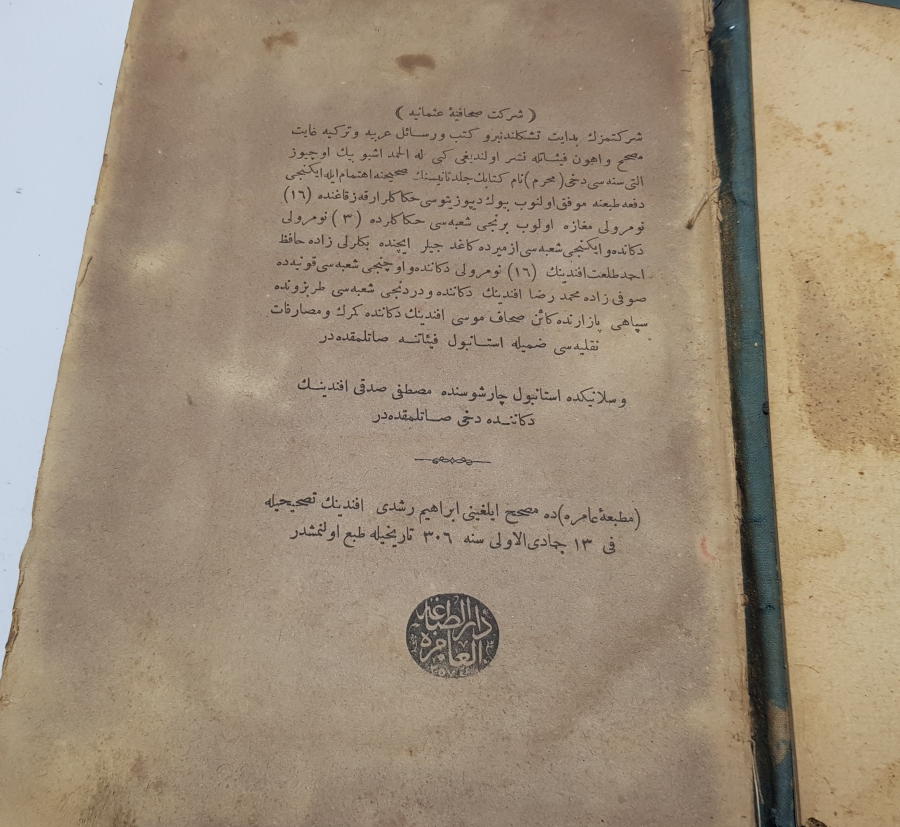 ( شركت صحافیهٔ عثمانیه )
شركتمزك بدایت تشكلندنبرو كتب و رسائل عربیه و تركیه غایت
مصحح و اهون فیئاتله نشر اولندیغی كبی له الحمد اشبو بیك اوچیوز
التی سنه‌سی دخی (محرم) نام كتابك جلد ثانیسنك صحیحنه اهتمام ایله ایكنجی
دفعه طبعنه موفق اولنوب بیوك دیپوزیتوسی حكاكلر ارقه‌زقاغنده (١٦)
نومرولی مغازه اولوب برنجی شعبه‌سی حكاكلرده (٣) نومرولی
دكانده و ایكنجی شعبه‌سی ازمیرده كاغد جیلر ایچنده بكارلی زاده حافظ
احمد طلعت افندینك (١٦) نومرولی دكانده و اوچنجی شعبه‌سی قونیه‌ده
صوفی زاده محمد رضا افندینك دكاننده و دردنجی شعبه‌سی طربزونده
سپاهی پازارنده كائن صحاف موسی افندینك دكاننده كمرك و مصارفات
نقلیه‌سی ضمیله استانبول فیئاتنه صاتلمقده‌در
و سلانیكده استانبول چارشوسنده مصطفی صدقی افندینك
دكاننده دخی صاتلمقده‌در
(مطبعهٔ عامره) ده مصحح ایلغینی ابراهیم رشدی افندینك تصحیحیله
فی ١٣ جمادی الاولی سنه ٣٠٦ تاریخیله طبع اولنمشدر
دار الطباعه
العامره